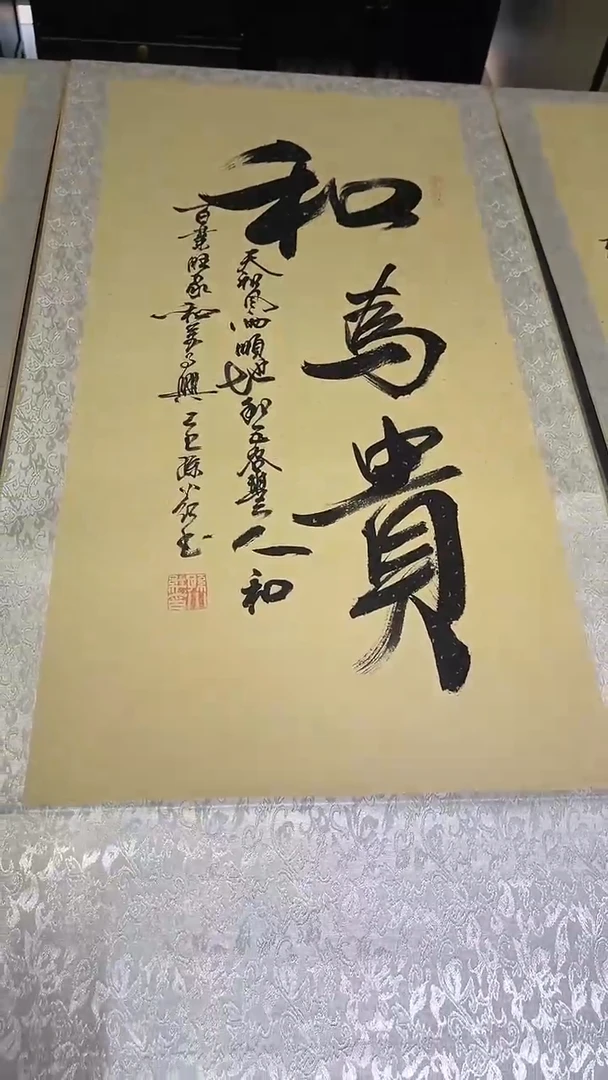 和為貴
天和風雨順地和五谷豐人和
百業旺家和萬事興